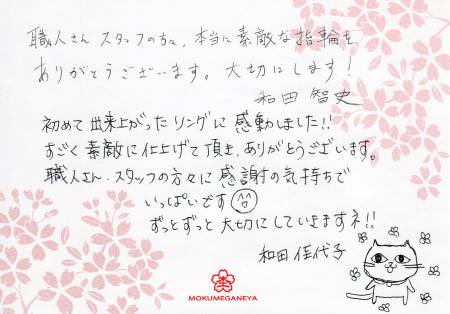 職人さん スタッフの方々、本当に素敵な指輪を
ありがとうございます。大切にします！
和田 智史
初めて出来上がったリングに感動しました!!
すごく素敵に仕上げて頂き、ありがとうございます。
職人さん、スタッフの方々に感謝の気持ちで
いっぱいです
ずっとずっと大切にしていきますネ!!
和田 佳代子
MOKUMEGANEYA